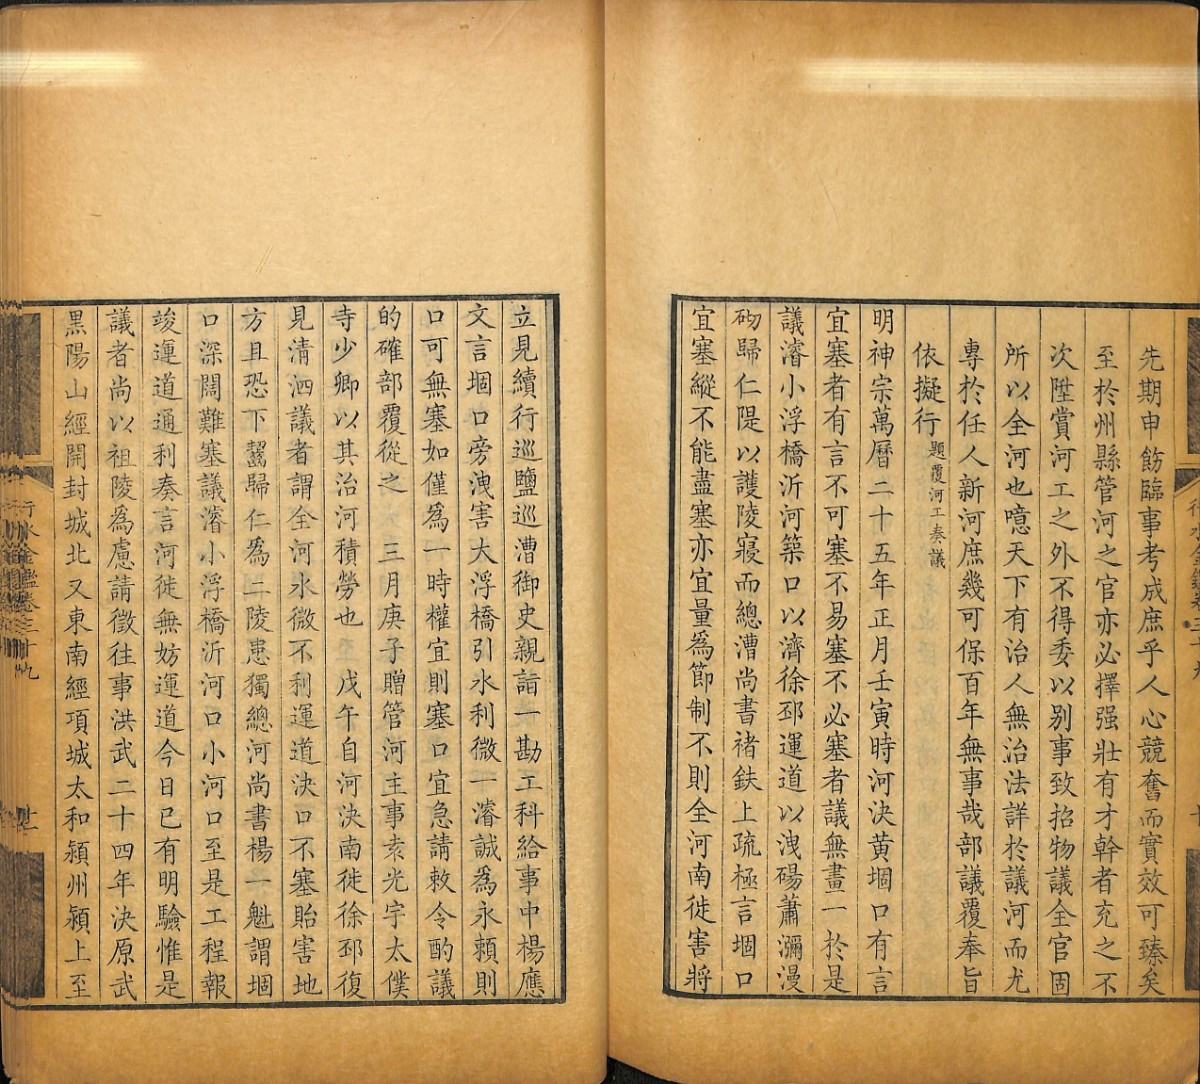 先期申飭臨事考成庶乎人心競奮而實效可臻矣
至於州縣管河之官亦必擇强壯有才幹者充之不
次陞賞河工之外不得委以别事致招物議全官固
所以全河也噫天下有治人無治法詳於議河而尤
專於任人新河庶幾可保百年無事哉部議覆奉旨
依擬行題覆河工奏議
明神宗萬曆二十五年正月壬寅時河決黄堌口有言
宜塞者有言不可塞不易塞不必塞者議無畫一於是
議濬小浮橋沂河築口以濟徐邳運道以洩碭蕭瀰漫
砌歸仁隄以護陵寢而總漕尚書褚鈇上疏極言堌口
宜塞縱不能盡塞亦宜量為節制不則全河南徙害將
立見續行巡鹽巡漕御史親詣一勘工科給事中楊應
文言堌口旁洩害大浮橋引水利微一濬誠為永賴則
口可無塞如僅為一時權宜則塞口宜急請敕令酌議
的確部覆從之 三月庚子贈管河主事袁光宇太僕
寺少卿以其治河積勞也 戊午自河決南徙徐邳復
見清泗議者謂全河水微不利運道決口不塞貽害地
方且恐下齧歸仁為二陵患獨總河尚書楊一魁謂堌
口深闊難塞議濬小浮橋沂河口小河口至是工程報
竣運道通利奏言河徙無妨運道今日已有明驗惟是
議者尚以祖陵為慮請徵往事洪武二十四年決原武
黑陽山經開封城北又東南經項城太和潁州潁上至
行水金鑑卷三十九